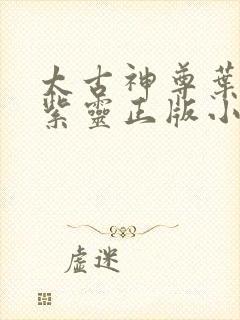 太古神尊葉
紫靈正版小
虚迷